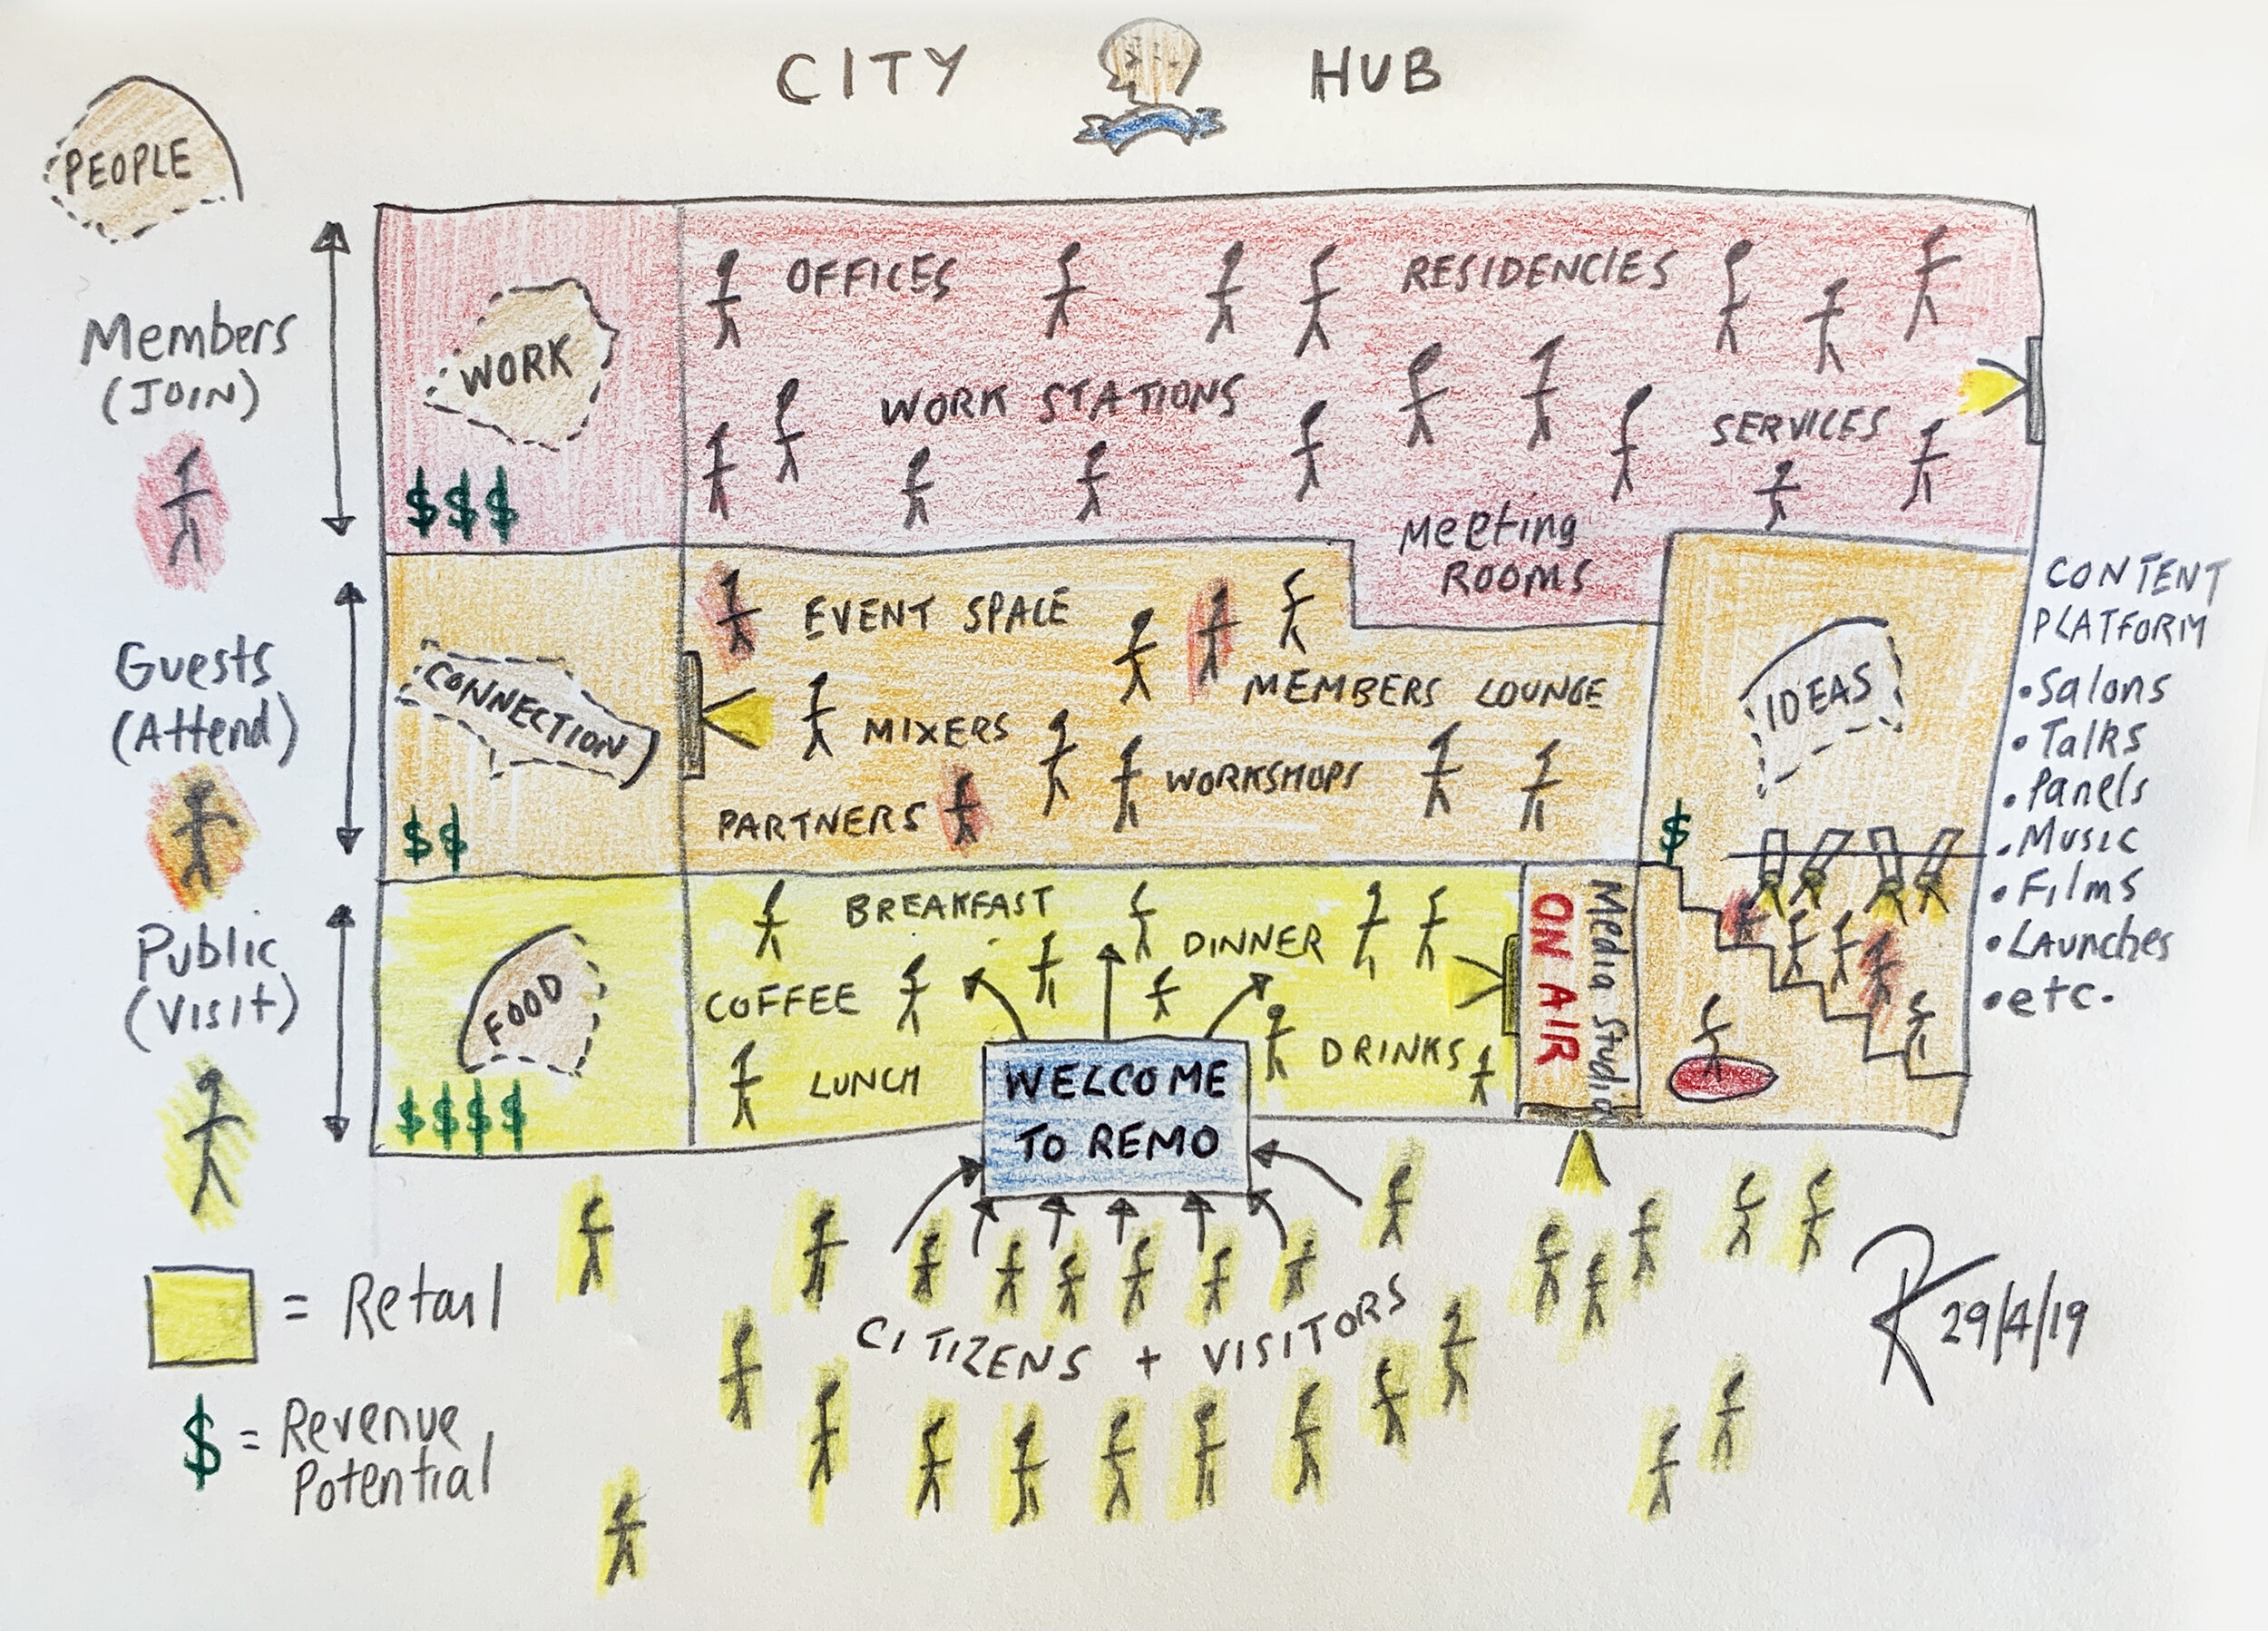 CITY HUB
PEOPLE
Members
(JOIN)
WORK
$$$
OFFICES
RESIDENCIES
WORK STATIONS
SERVICES
Meeting
ROOMS
Guests
(Attend)
CONNECTION
$$
EVENT SPACE
MEMBERS LOUNGE
MIXERS
WORKSHOPS
PARTNERS
IDEAS
$
CONTENT
PLATFORM
• Salons
• Talks
• Panels
• Music
• Films
• Launches
• etc.
Public
(Visit)
FOOD
$$$$
BREAKFAST
DINNER
COFFEE
LUNCH
DRINKS
ON AIR
Media Studio
WELCOME
TO REMO
CITIZENS + VISITORS
= Retail
$ = Revenue
Potential
29/4/19